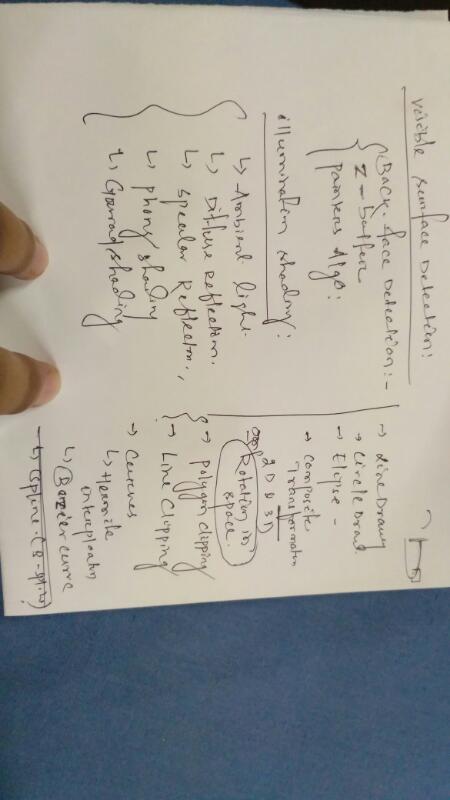 visible surface Detection:
Back-face Detection:-
Z-buffer
Painters Algo:
illumination shading:
↳ Ambient light.
↳ Diffuse Reflection.
↳ specular Reflection,
↳ phong shading
↳ Gouraud shading
→ Line Drawing
→ Circle Draw.
→ Elipse -
→ Composite Transformation
2D D 3D
Rotation in space.
→ Polygon Clipping
→ Line Clipping
→ Curves
↳ Hermite interploation
↳ Bezier curve
↳ Spline. (B-spline)